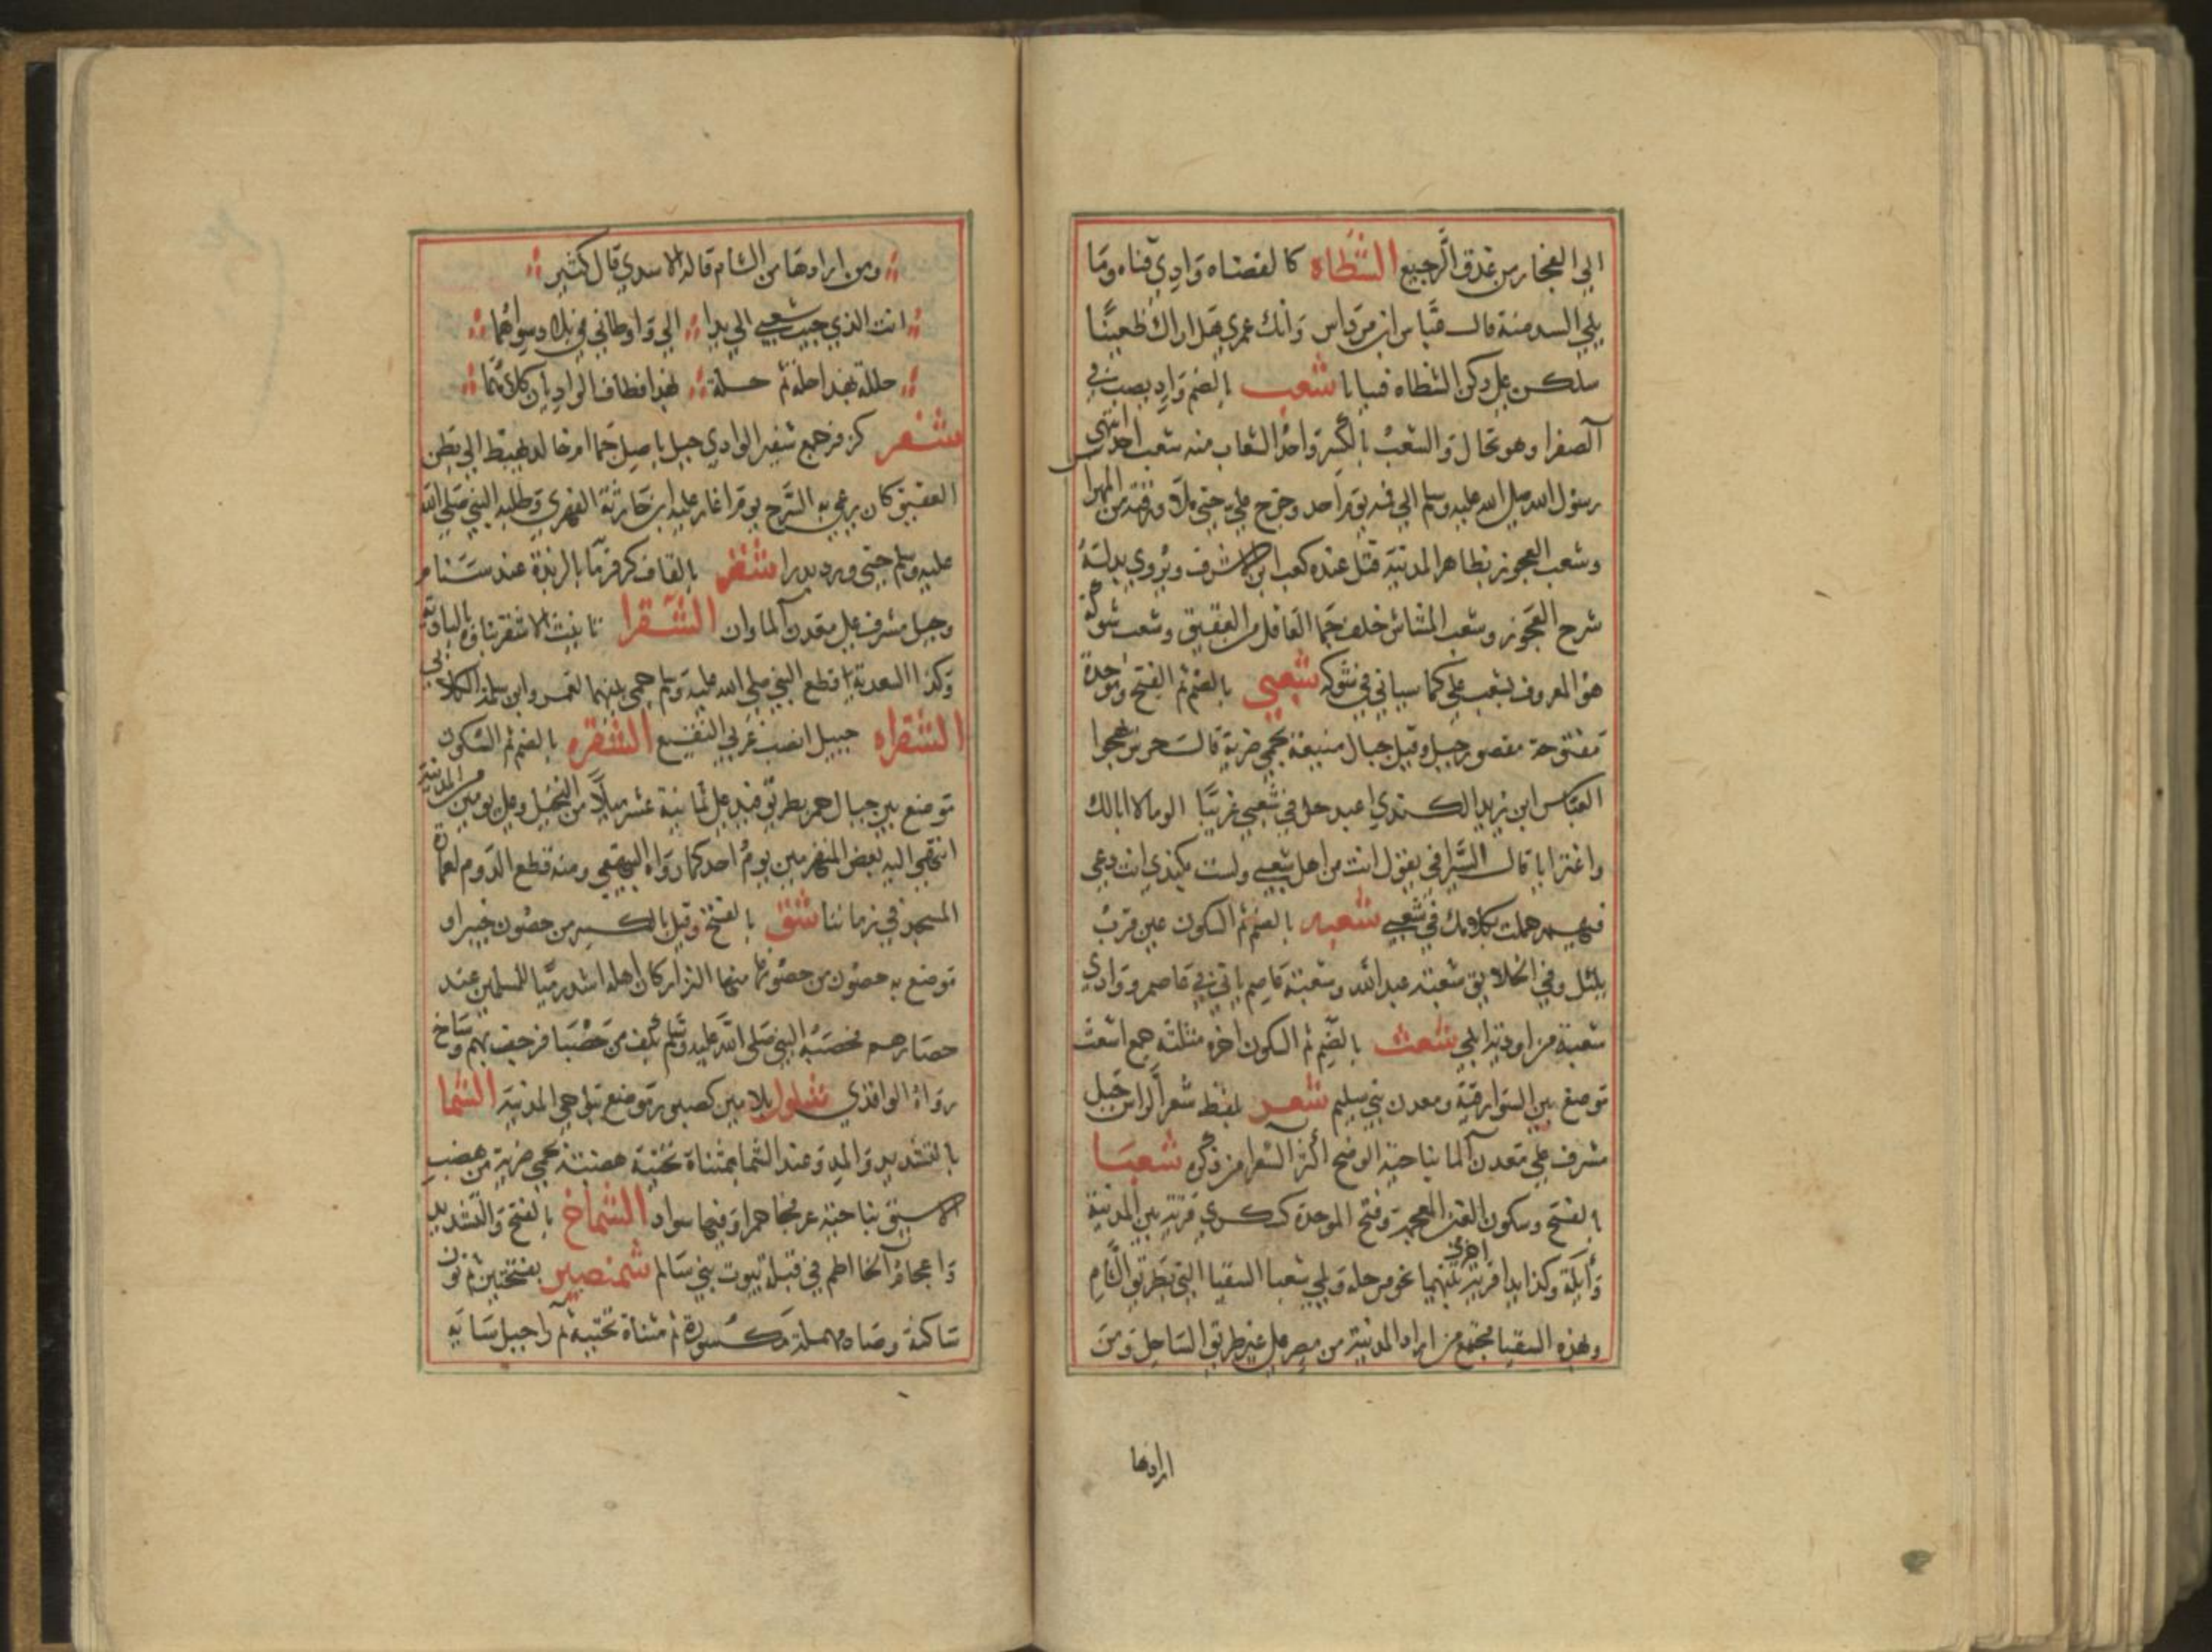 الي الفجار من غدق الرجيع الشظاه كالفضاه وادي قناه وما
يلي السد منه قال عباس ابن مرداس وانك عمري هل اراك ظعينا
سلكن علي ركن الشظاه فيبابا شعب بالضم واد يصب في
الصفرا وهو نخال والشعب بالكسر واحد الشعاب منه شعب احد انتهي
رسول الله صلي الله عليه وسلم الي فه يوم احد وخرج علي حتي ملا درقته من المهرا
وشعب العجوز بظاهر المدينة قتل عنده كعب ابن الاشرف ويروي بدله
شرح العجوز وشعب المشاش خلف جما العاقل من العقيق وشعب شوكة
هو المعروف بشعب علي كما سياتي في شوكه شعبي بالضم ثم الفتح وموحدة
مفتوحة مقصور جبل وقيل جبال منيعة بحمي ضرية قال جرير يهجوا
العباس ابن يزيد الكندي اعبد حل في شعبي غريبا الوما لا ابا لك
واغترابا قال السيرافي يقول انت من اهل شعبي ولست بكندي انت دعي
فيهم حملت بك امك في شعبي شعبه بالضم ثم السكون عين قرب
يليل وفي الخلايق شعبة عبد الله وشعبة عاصم ياتي في عاصم ووادي
شعبة من اودية ابلي شعث بالضم ثم السكون اخره مثلثة جمع اشعث
موضع بين السوارقية ومعدن بني سليم شعر بلفظ شعر الراس جبل
مشرف علي معدن الما بناحية الوضح اكثر الشعرا من ذكره شعبا
بالفتح وسكون الغين المعجمة وفتح الموحدة كسكري قرية بين المدينة
وايلة وكذا بدا قرية اخري بينهما نحو مرحلة ويلي شعبا السقيا التي بطريق الشام
وبهذه السقيا مجتمع من اراد المدينة من مصر علي غير طريق الساحل ومن
ارادها
ومن ارادها من الشام قاله الاسدي قال كثير
انت الذي حببت شعبي الي بدا الي واوطاني بلاد سواهما
حللت بهذا حلة ثم حلة بهذا فطاف الواديان كلاهما
شفر كزفر جمع شفير الوادي جبل باصل جما ام خالد يهبط الي بطن
العقيق كان يرعي به السرح يوم اغار عليه ابن جابر الفهري وطلبه النبي صلي الله
عليه وسلم حتي ورد بدرا شقر بالقاف كزفر ما بالربذة عند سنام
وجبل مشرف علي معدن الماوان الشقرا تانيث الاشقر ما في البادية
وكذا السعدية اقطع النبي صلي الله عليه وسلم حمي بينهما لعمرو ابن سلمة الكلابي
الشقراه جبيل انصب غربي النقيع الشقره بالضم ثم السكون
موضع بين جبال حمر بطريق فيد علي ثمانية عشر ميلا من النخيل وعلي يومين من المدينة
انتهي اليه بعض المنهزمين يوم احد كما رواه البيهقي ومنه قطع الدوم لعمارة
المسجد في زماننا شق بالفتح وقيل بالكسر من حصون خيبر او
موضع به حصون من حصونها منها النزار كان اهله اشد رميا للمسلمين عند
حصارهم فحصبه النبي صلي الله عليه وسلم بكف من حصبا فرجف بهم وساخ
رواه الواقذي شلول بلامين كصبور موضع بنواحي المدينة الشما
بالتشديد والمد وعند الشما بمثناة تحتية هضبة بحمي ضرية من هضب
الاسيق بناحية عرفجا حمرا وفيها سواد الشماخ بالفتح والتشديد
واعجام الخا اطم في قبلة بيوت بني سالم شمنصير بفتحتين ثم نون
ساكنة وصاد مهملة مكسورة ثم مثناة تحتية ثم را جبل سايه